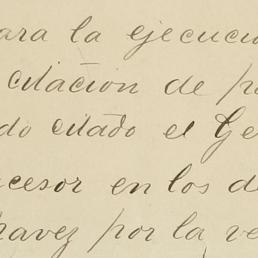 ara la ejecuci
citacion de p
do citado el Ge
cesor en los d
havez por la ve